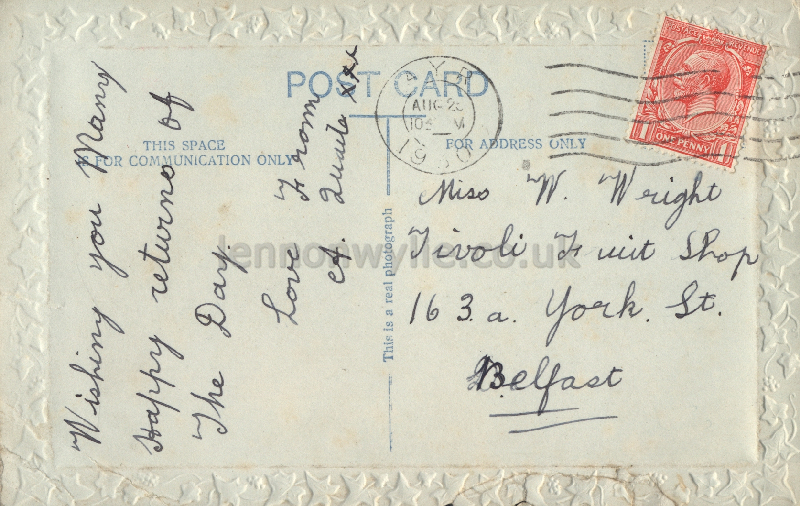 POST CARD
THIS SPACE
FOR COMMUNICATION ONLY
FOR ADDRESS ONLY
This is a real photograph
AYR
AUG 25
1930
ONE PENNY
1 1
Wishing you Many
Happy returns of
The Day.
Love From
A. Quaile xxx
Miss W. Wright
Tivoli Fruit Shop
163.a. York. St.
Belfast
lennonwylie.co.uk